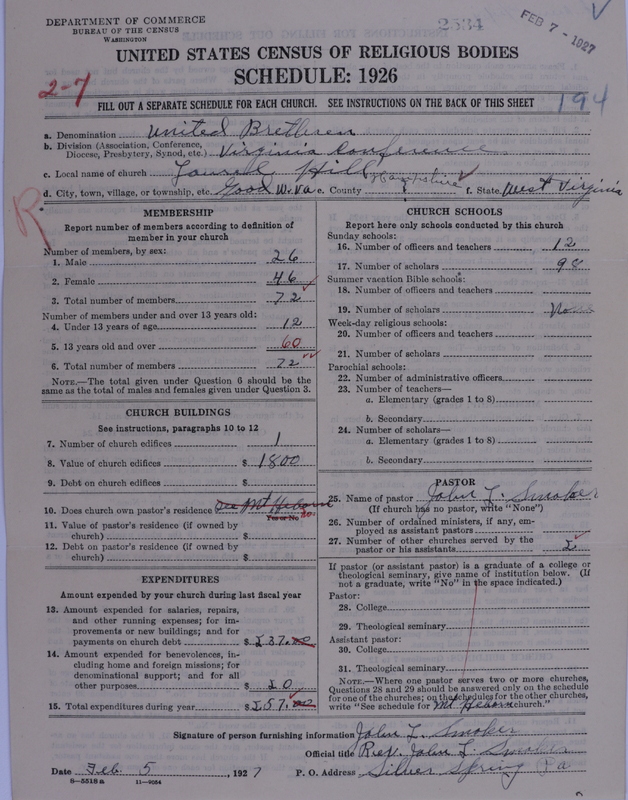 DEPARTMENT OF COMMERCE
BUREAU OF THE CENSUS
WASHINGTON
2534
FEB 7 - 1927
UNITED STATES CENSUS OF RELIGIOUS BODIES
SCHEDULE: 1926
2-7
194
FILL OUT A SEPARATE SCHEDULE FOR EACH CHURCH. SEE INSTRUCTIONS ON THE BACK OF THIS SHEET
a. Denomination United Brethren
b. Division (Association, Conference, Diocese, Presbytery, Synod, etc.) Virginia Conference
c. Local name of church Laurel Hill
d. City, town, village, or township, etc. Good W. Va e. County Hampshire f. State West Virginia
R
MEMBERSHIP
Report number of members according to definition of
member in your church
Number of members, by sex:
1. Male 26
2. Female 46
3. Total number of members 72
Number of members under and over 13 years old:
4. Under 13 years of age 12
5. 13 years old and over 60
6. Total number of members 72
NOTE.—The total given under Question 6 should be the
same as the total of males and females given under Question 3.
CHURCH BUILDINGS
See instructions, paragraphs 10 to 12
7. Number of church edifices 1
8. Value of church edifices $ 1800
9. Debt on church edifices $
10. Does church own pastor's residence? See Mt Hebron
Yes or No no
11. Value of pastor's residence (if owned by
church) $
12. Debt on pastor's residence (if owned by
church) $
EXPENDITURES
Amount expended by your church during last fiscal year
13. Amount expended for salaries, repairs,
and other running expenses; for im-
provements or new buildings; and for
payments on church debt $ 137.00
14. Amount expended for benevolences, in-
cluding home and foreign missions; for
denominational support; and for all
other purposes $ 20
15. Total expenditures during year $ 157.00
CHURCH SCHOOLS
Report here only schools conducted by this church
Sunday schools:
16. Number of officers and teachers 12
17. Number of scholars 98
Summer vacation Bible schools:
18. Number of officers and teachers
19. Number of scholars None
Week-day religious schools:
20. Number of officers and teachers
21. Number of scholars
Parochial schools:
22. Number of administrative officers
23. Number of teachers—
a. Elementary (grades 1 to 8)
b. Secondary
24. Number of scholars—
a. Elementary (grades 1 to 8)
b. Secondary
PASTOR
25. Name of pastor John L. Smoker
(If church has no pastor, write "None")
26. Number of ordained ministers, if any, em-
ployed as assistant pastors
27. Number of other churches served by the
pastor or his assistants
If pastor (or assistant pastor) is a graduate of a college or
theological seminary, give name of institution below. (If
not a graduate, write "No" in the space indicated.)
Pastor:
28. College
29. Theological seminary
Assistant pastor:
30. College
31. Theological seminary
NOTE.—Where one pastor serves two or more churches,
Questions 28 and 29 should be answered only on the schedule
for one of the churches; on the schedules for the other churches,
write "See schedule for Mt Hebron church."
Signature of person furnishing information John L. Smoker
Official title Rev. John L. Smoker
Date Feb. 5, 1927 P. O. Address Silver Spring Pa
8-5518a 11-9084